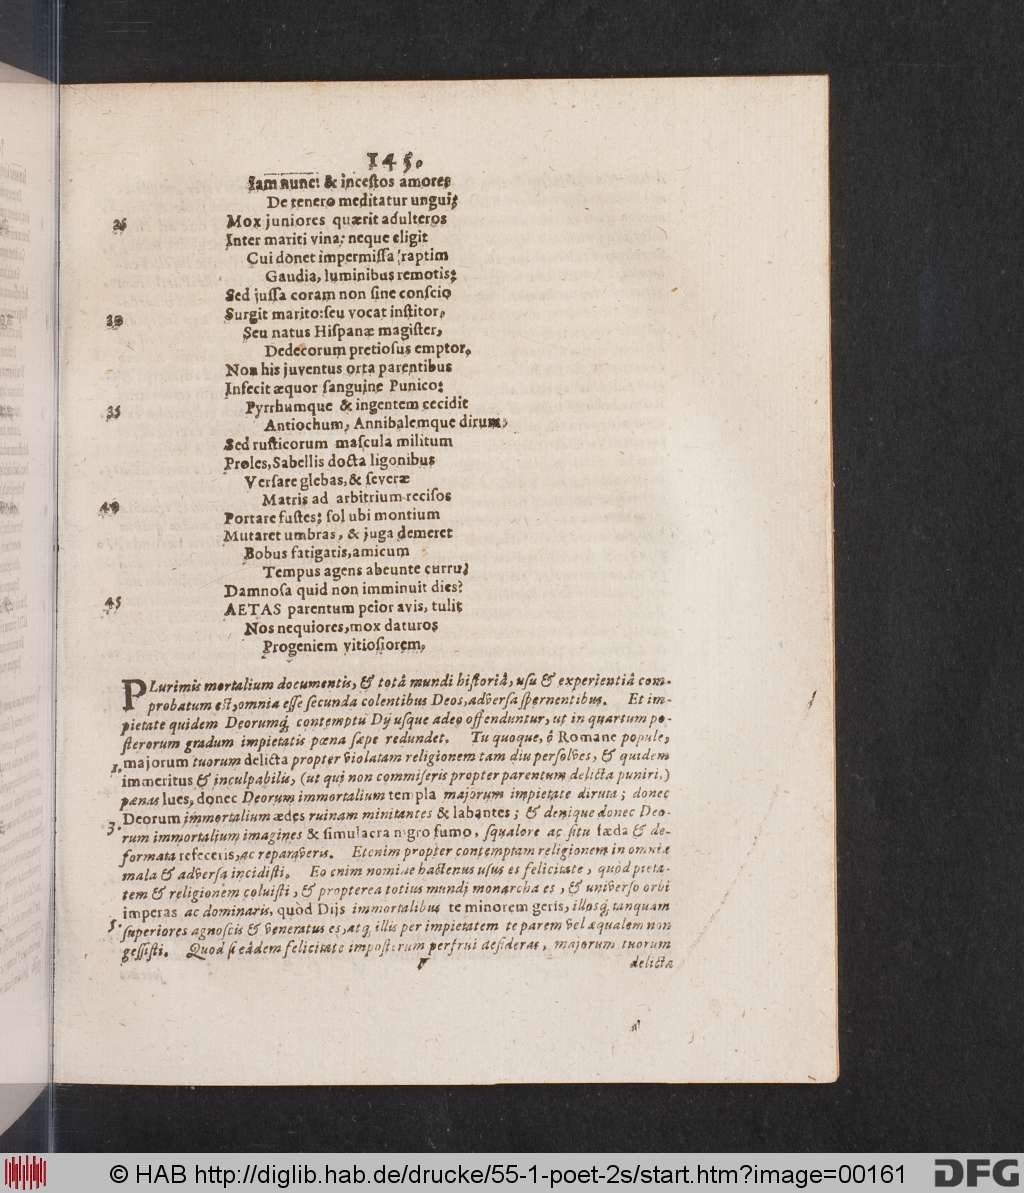 145.
Iam nunc: & inceſtos amores
De tenero meditatur ungui;
25 Mox juniores quærit adulteros
Inter mariti vina; neque eligit
Cui dònet impermiſſa raptim
Gaudia, luminibus remotis;
Sed juſſa coram non ſine conſcio
30 Surgit marito: ſeu vocat inſtitor,
Seu natus Hiſpanæ magiſter,
Dedecorum pretioſus emptor.
Non his juventus orta parentibus
Infecit æquor ſanguine Punico:
35 Pyrrhumque & ingentem cecidit
Antiochum, Annibalemque dirum;
Sed ruſticorum maſcula militum
Proles, Sabellis docta ligonibus
Verſare glebas, & ſeveræ
Matris ad arbitrium reciſos
40 Portare fuſtes; ſol ubi montium
Mutaret umbras, & juga demeret
Bobus fatigatis, amicum
Tempus agens abeunte curru;
Damnoſa quid non imminuit dies?
45 AETAS parentum peior avis, tulit
Nos nequiores, mox daturos
Progeniem vitioſiorem.
PLurimis mortalium documentis, & totâ mundi hiſtoriâ, uſu & experientiâ com-
probatum eſt, omnia eſſe ſecunda colentibus Deos, adverſa ſpernentibus. Et im-
pietate quidem Deorumq́; contemptu Dij uſque adeo offenduntur, ut in quartum po-
ſterorum gradum impietatis pœna ſæpe redundet. Tu quoque, ô Romane popule,
1. majorum tuorum delicta propter violatam religionem tam diu perſolves, & quidem
immeritus & inculpabilis, (ut qui non commiſeris propter parentum delicta puniri,)
pœnas lues, donec Deorum immortalium templa majorum impietate diruta; donec
3. Deorum immortalium ædes ruinam minitantes & labantes; & denique donec Deo-
rum immortalium imagines & ſimulacra nigro fumo, ſqualore ac ſitu fæda & de-
formata refeceris, ac reparaveris. Etenim propter contemptam religionem in omnia
mala & adverſa incidiſti. Eo enim nomine hactenus uſus es felicitate, quòd pieta-
tem & religionem coluiſti, & propterea totius mundi monarcha es, & univerſo orbi
imperas ac dominaris, quòd Dijs immortalibus te minorem geris, illosq́; tanquam
5. ſuperiores agnoſcis & veneratus es, atq; illis per impietatem te parem vel æqualem non
geſſiſti. Quod ſi eâdem felicitate impoſterum perfrui deſideras, majorum tuorum
delicta
© HAB http://diglib.hab.de/drucke/55-1-poet-2s/start.htm?image=00161
DFG